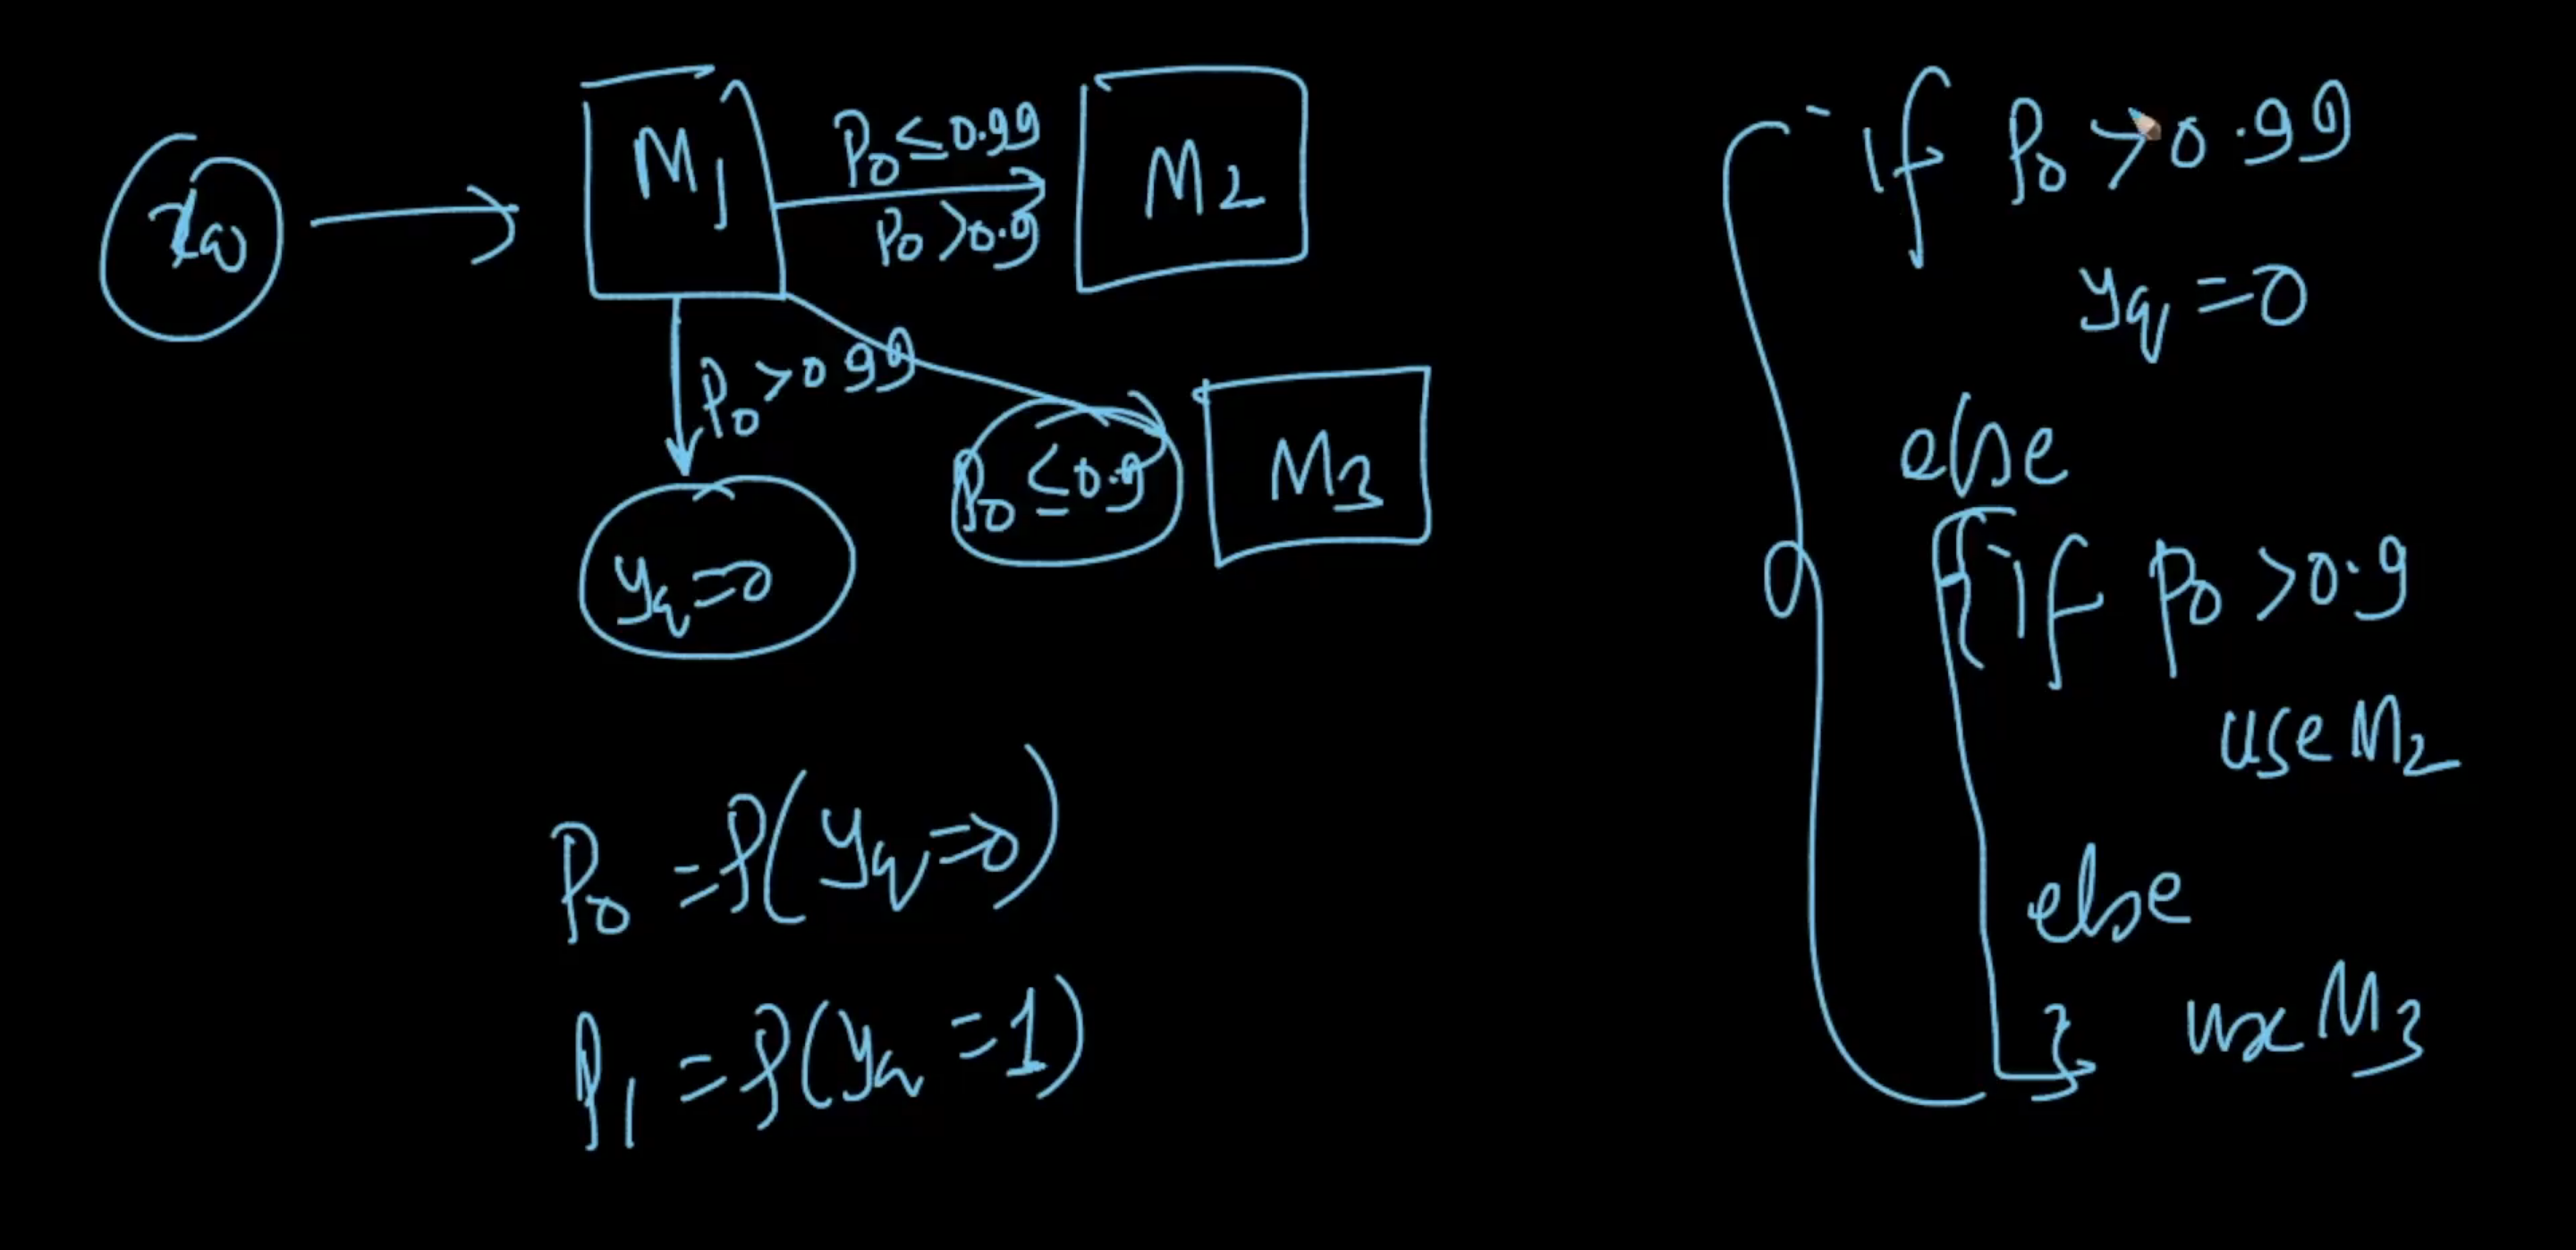 x_q
M_1
P_0 ≤ 0.99
P_0 > 0.9
M_2
P_0 > 0.99
P_0 ≤ 0.9
M_3
y_q = 0
P_0 = P(y_q = 0)
P_1 = P(y_q = 1)
if P_0 > 0.99
y_q = 0
else
{ if P_0 > 0.9
use M_2
else
} use M_3